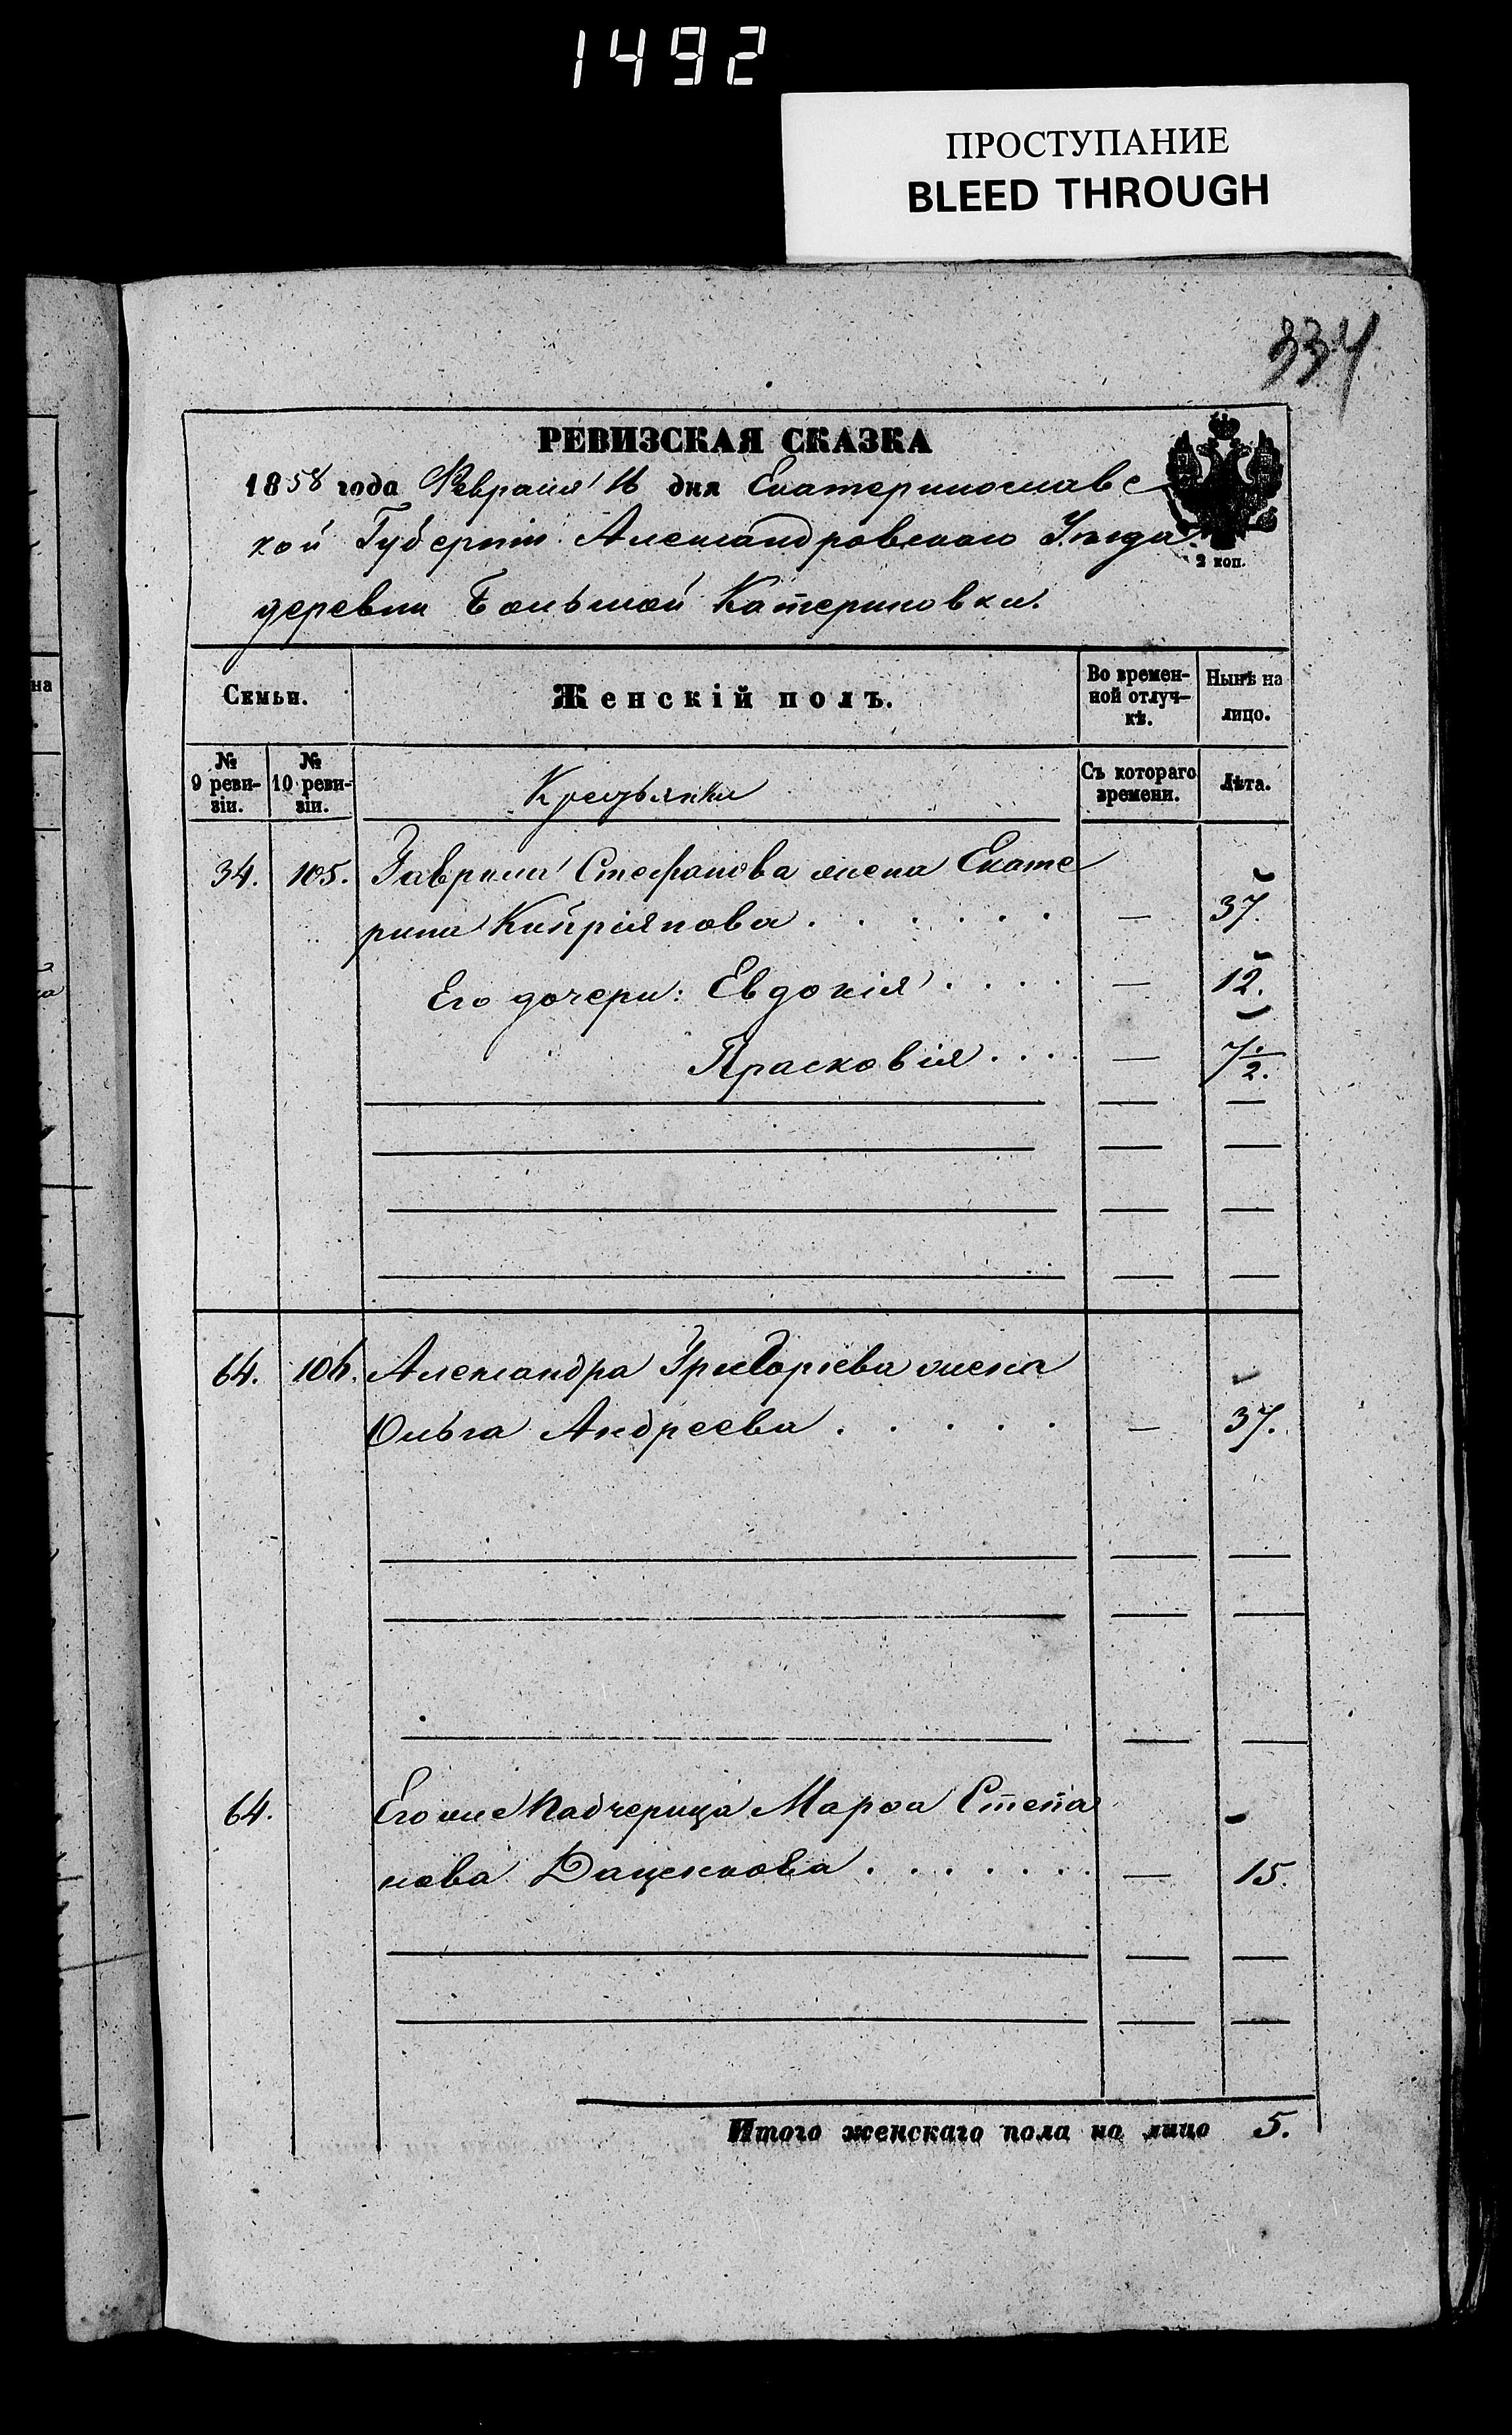 1492
ПРОСТУПАНИЕ
BLEED THROUGH
334
РЕВИЗСКАЯ СКАЗКА
1858 года Февраля 16 дня Екатеринославс
кой Губерніи Александровскаго Уѣзда
2 коп.
деревни Большой Катериновки.
Семьи.
Женскій полъ.
Во времен-
ной отлуч-
кѣ.
Нынѣ на
лицо.
№
9 реви-
зіи.
№
10 реви-
зіи.
Крестьянки
Съ котораго
времени.
Лѣта.
34. 105. Гаврила Стефанова жена Екате
рина Кипріянова . . . . . . — 37.
Его дочери: Евдокія . . . . — 12.
Прасковія . . . . — 7/2.
64. 106. Александра Григоріева жена
Ольга Андреева . . . . . — 37.
64. Его же падчерица Марѳа Степа
нова Даценкова . . . . . . . — 15.
Итого женскаго пола на лицо 5.
на